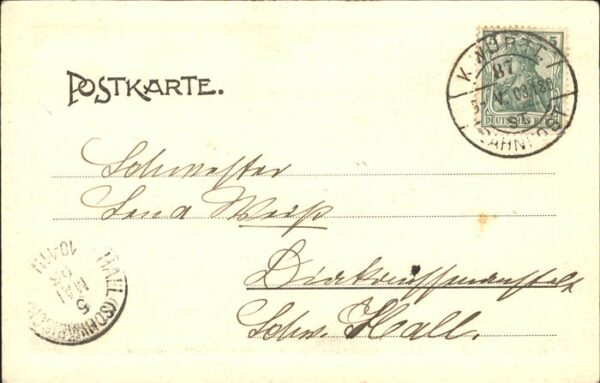 POSTKARTE.
K. WÜRTT.
87
5. V. 03.
BAHNPOST
5
DEUTSCHES REICH
Schwester
Lena Weiß
Diakonissenanstalt
Schw. Hall.
HALL (SCHWÄB.)
5
MAI
03
10-11 N